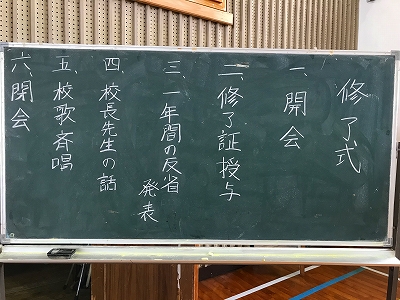 修了式
一、開会
二、修了証授与
三、一年間の反省
発表
四、校長先生の話
五、校歌斉唱
六、閉会